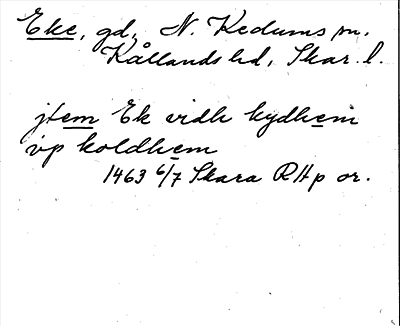 Eke, gd, N. Kedums sn.
Kållands hd, Skar. l.
jtem Ek vidh kydhem
vp koldhem
1463 6/7 Skara RAp or.